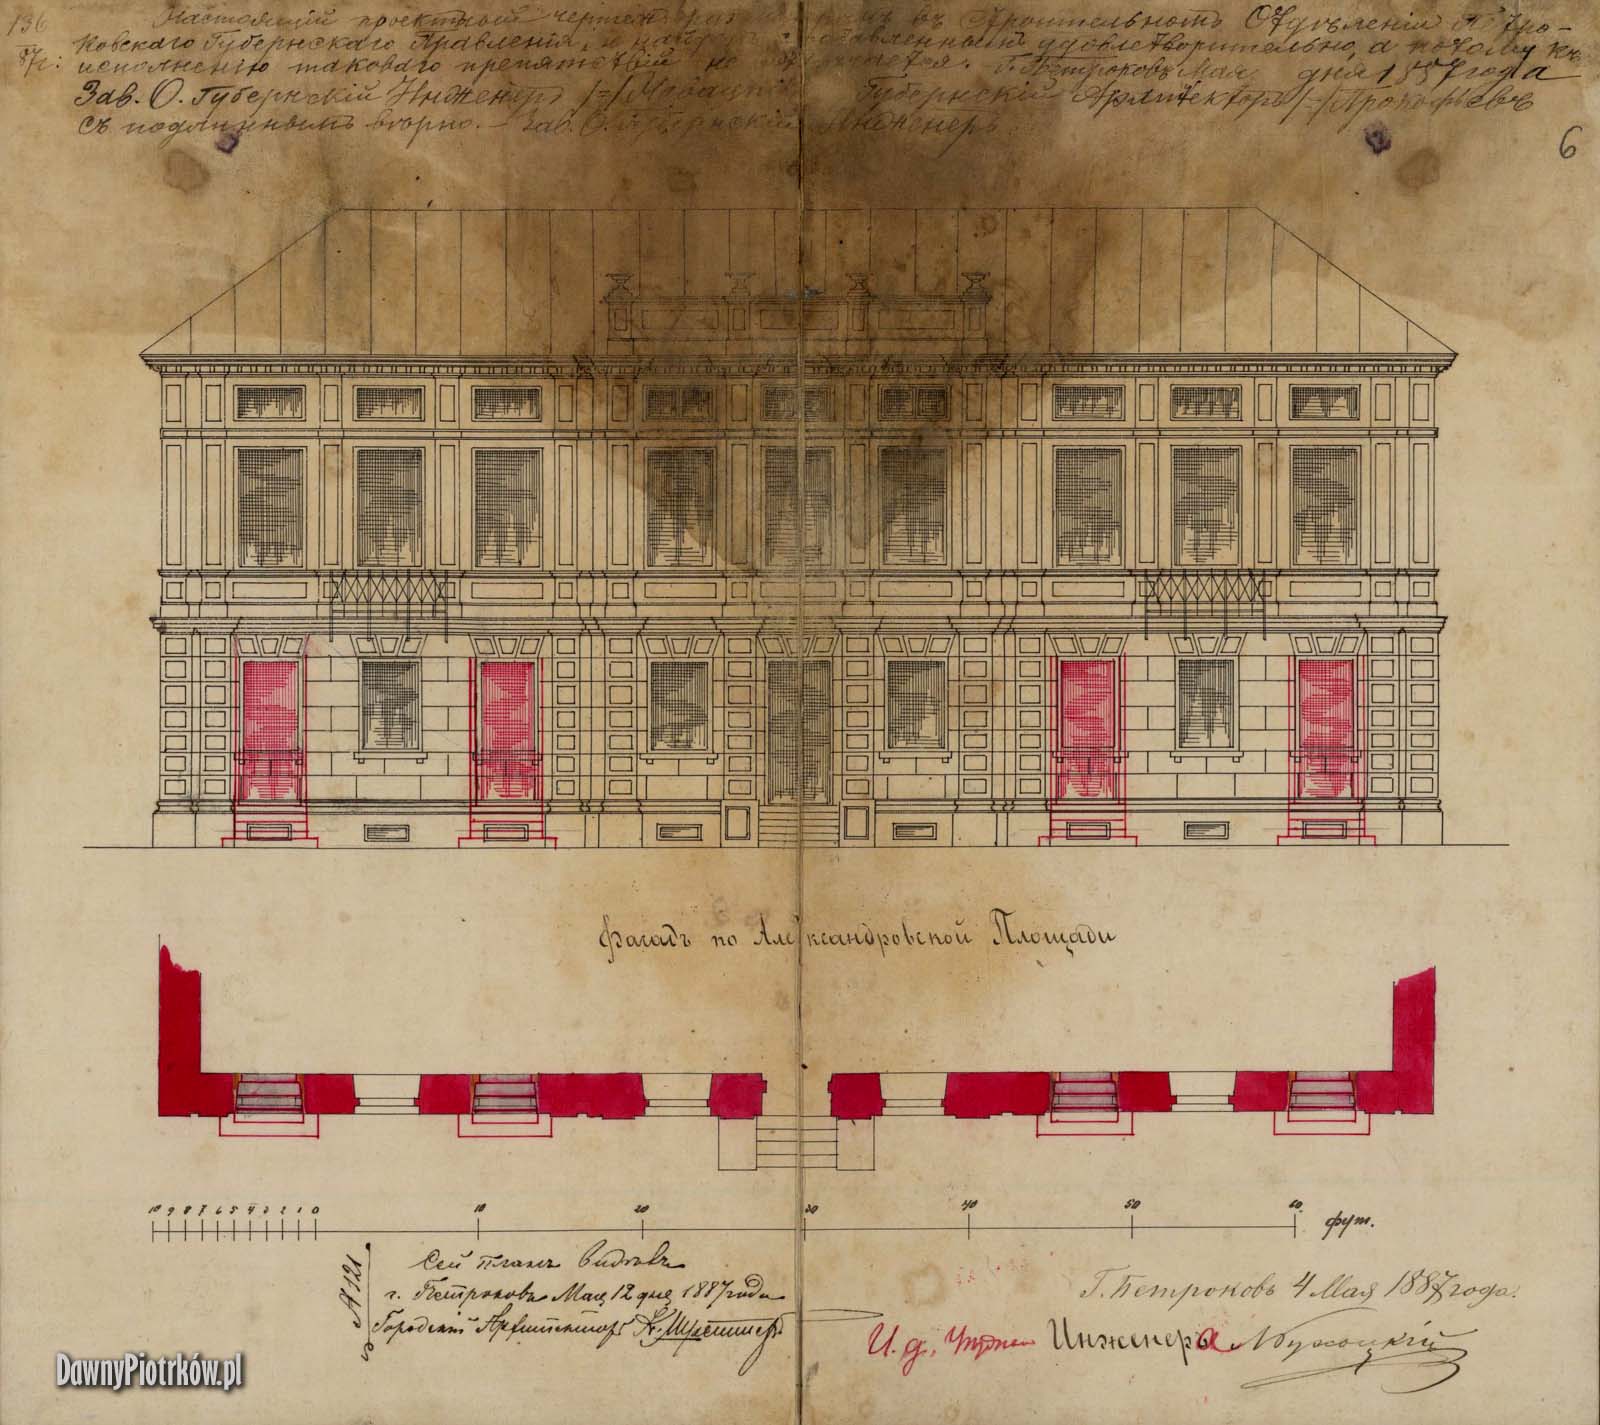 136
87г:
Настоящій проектный чертеж въ Строительномъ Отдѣленіи Петро-
ковскаго Губернскаго Правленія, и удовлетворительно, а потому къ
исполненію таковаго препятствій не встрѣчается. Г. Петроковъ Мая дня 1887 года
Зав. О. Губернскій Инженеръ /-/ Новацкій Губернскій Архитекторъ /-/ Прокофьевъ
Съ подлиннымъ вѣрно. — Зав. О. Губернскій Инженеръ
6
Фасадъ по Александровской Площади
10 9 8 7 6 5 4 3 2 1 0 10 20 30 40 50 60 фут.
№ 121
Сей планъ видѣлъ
г. Петроковъ Мая 12 дня 1887 года
Городской Архитекторъ
Г. Петроковъ 4 Мая 1887 года.
И. д. Инженера
DawnyPiotrków.pl